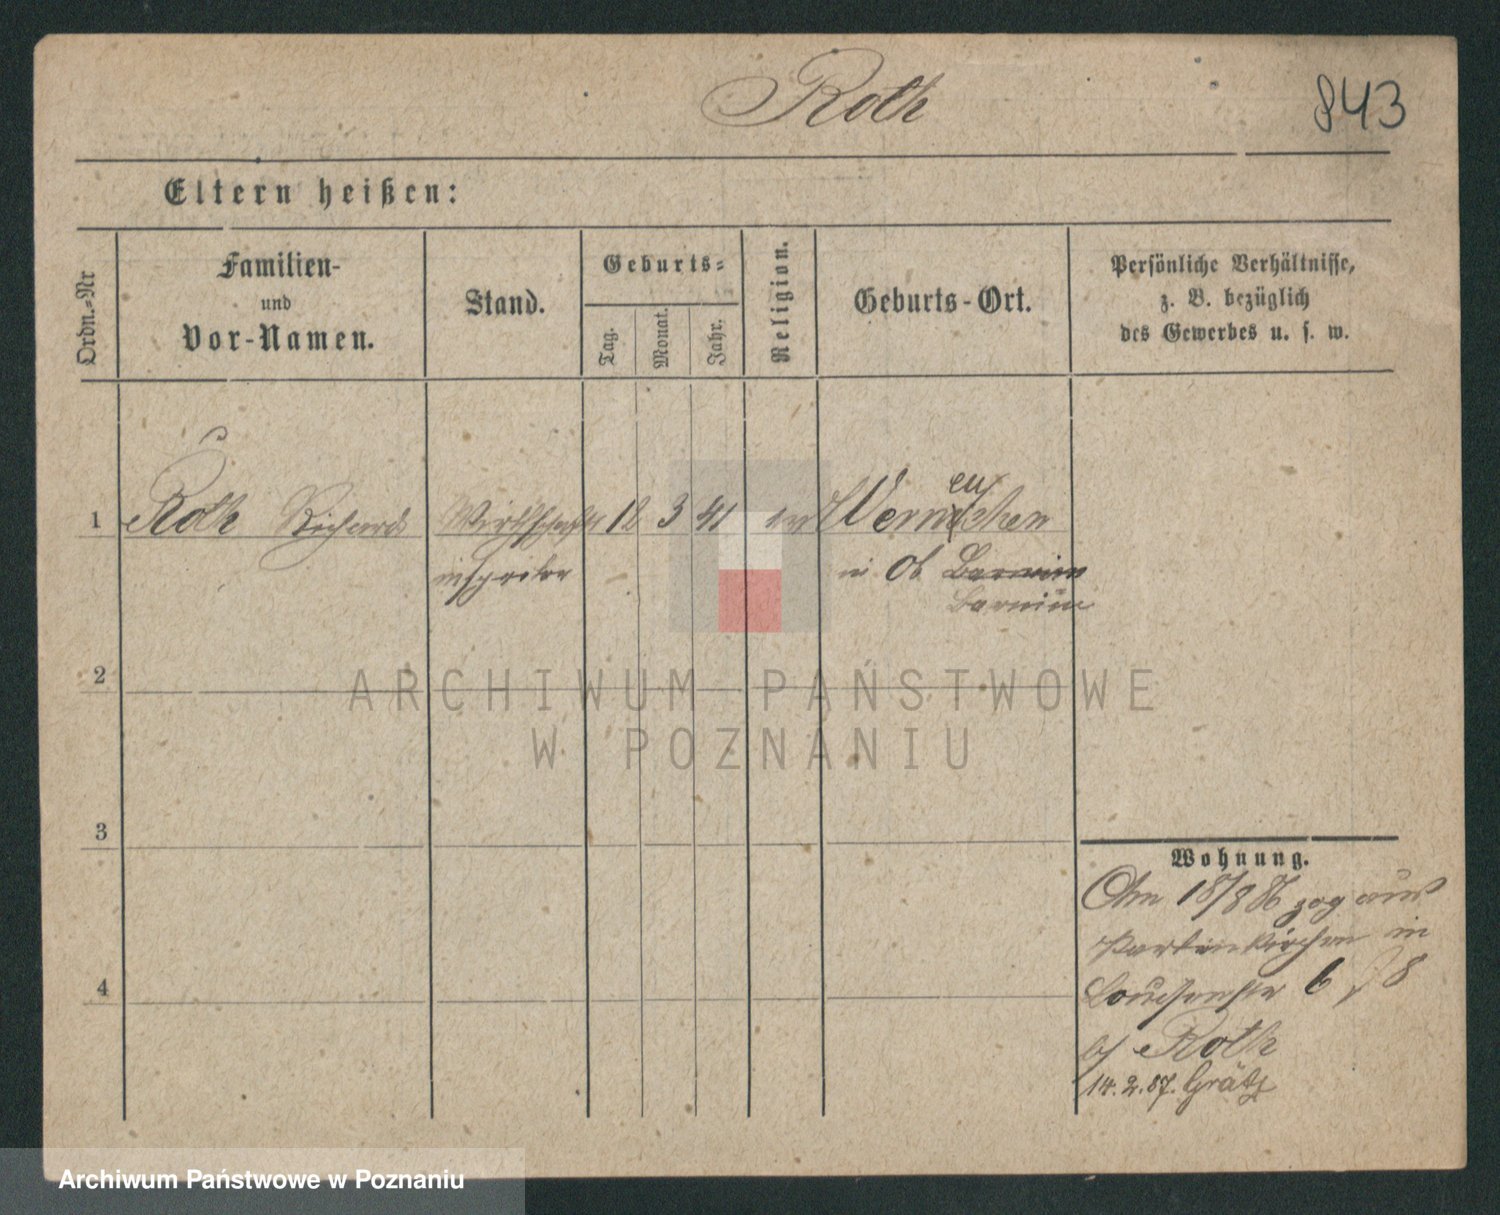 Roth
843
Eltern heißen:
Ordn.-Nr
Familien-
und
Vor-Namen.
Stand.
Geburts-
Tag.
Monat.
Jahr.
Religion.
Geburts-Ort.
Persönliche Verhältnisse,
z. B. bezüglich
des Gewerbes u. s. w.
1 Roth Richard Wirthschafts 12 3 41 ev Werneuchen
inspektor in Ob Barnim
Barnim
2
ARCHIWUM PAŃSTWOWE
W POZNANIU
3
Wohnung.
Am 18/8 86 zog aus
Partenkirchen in
Louisenstr 6 8
bj Roth
4
14.2.87. Grätz
Archiwum Państwowe w Poznaniu